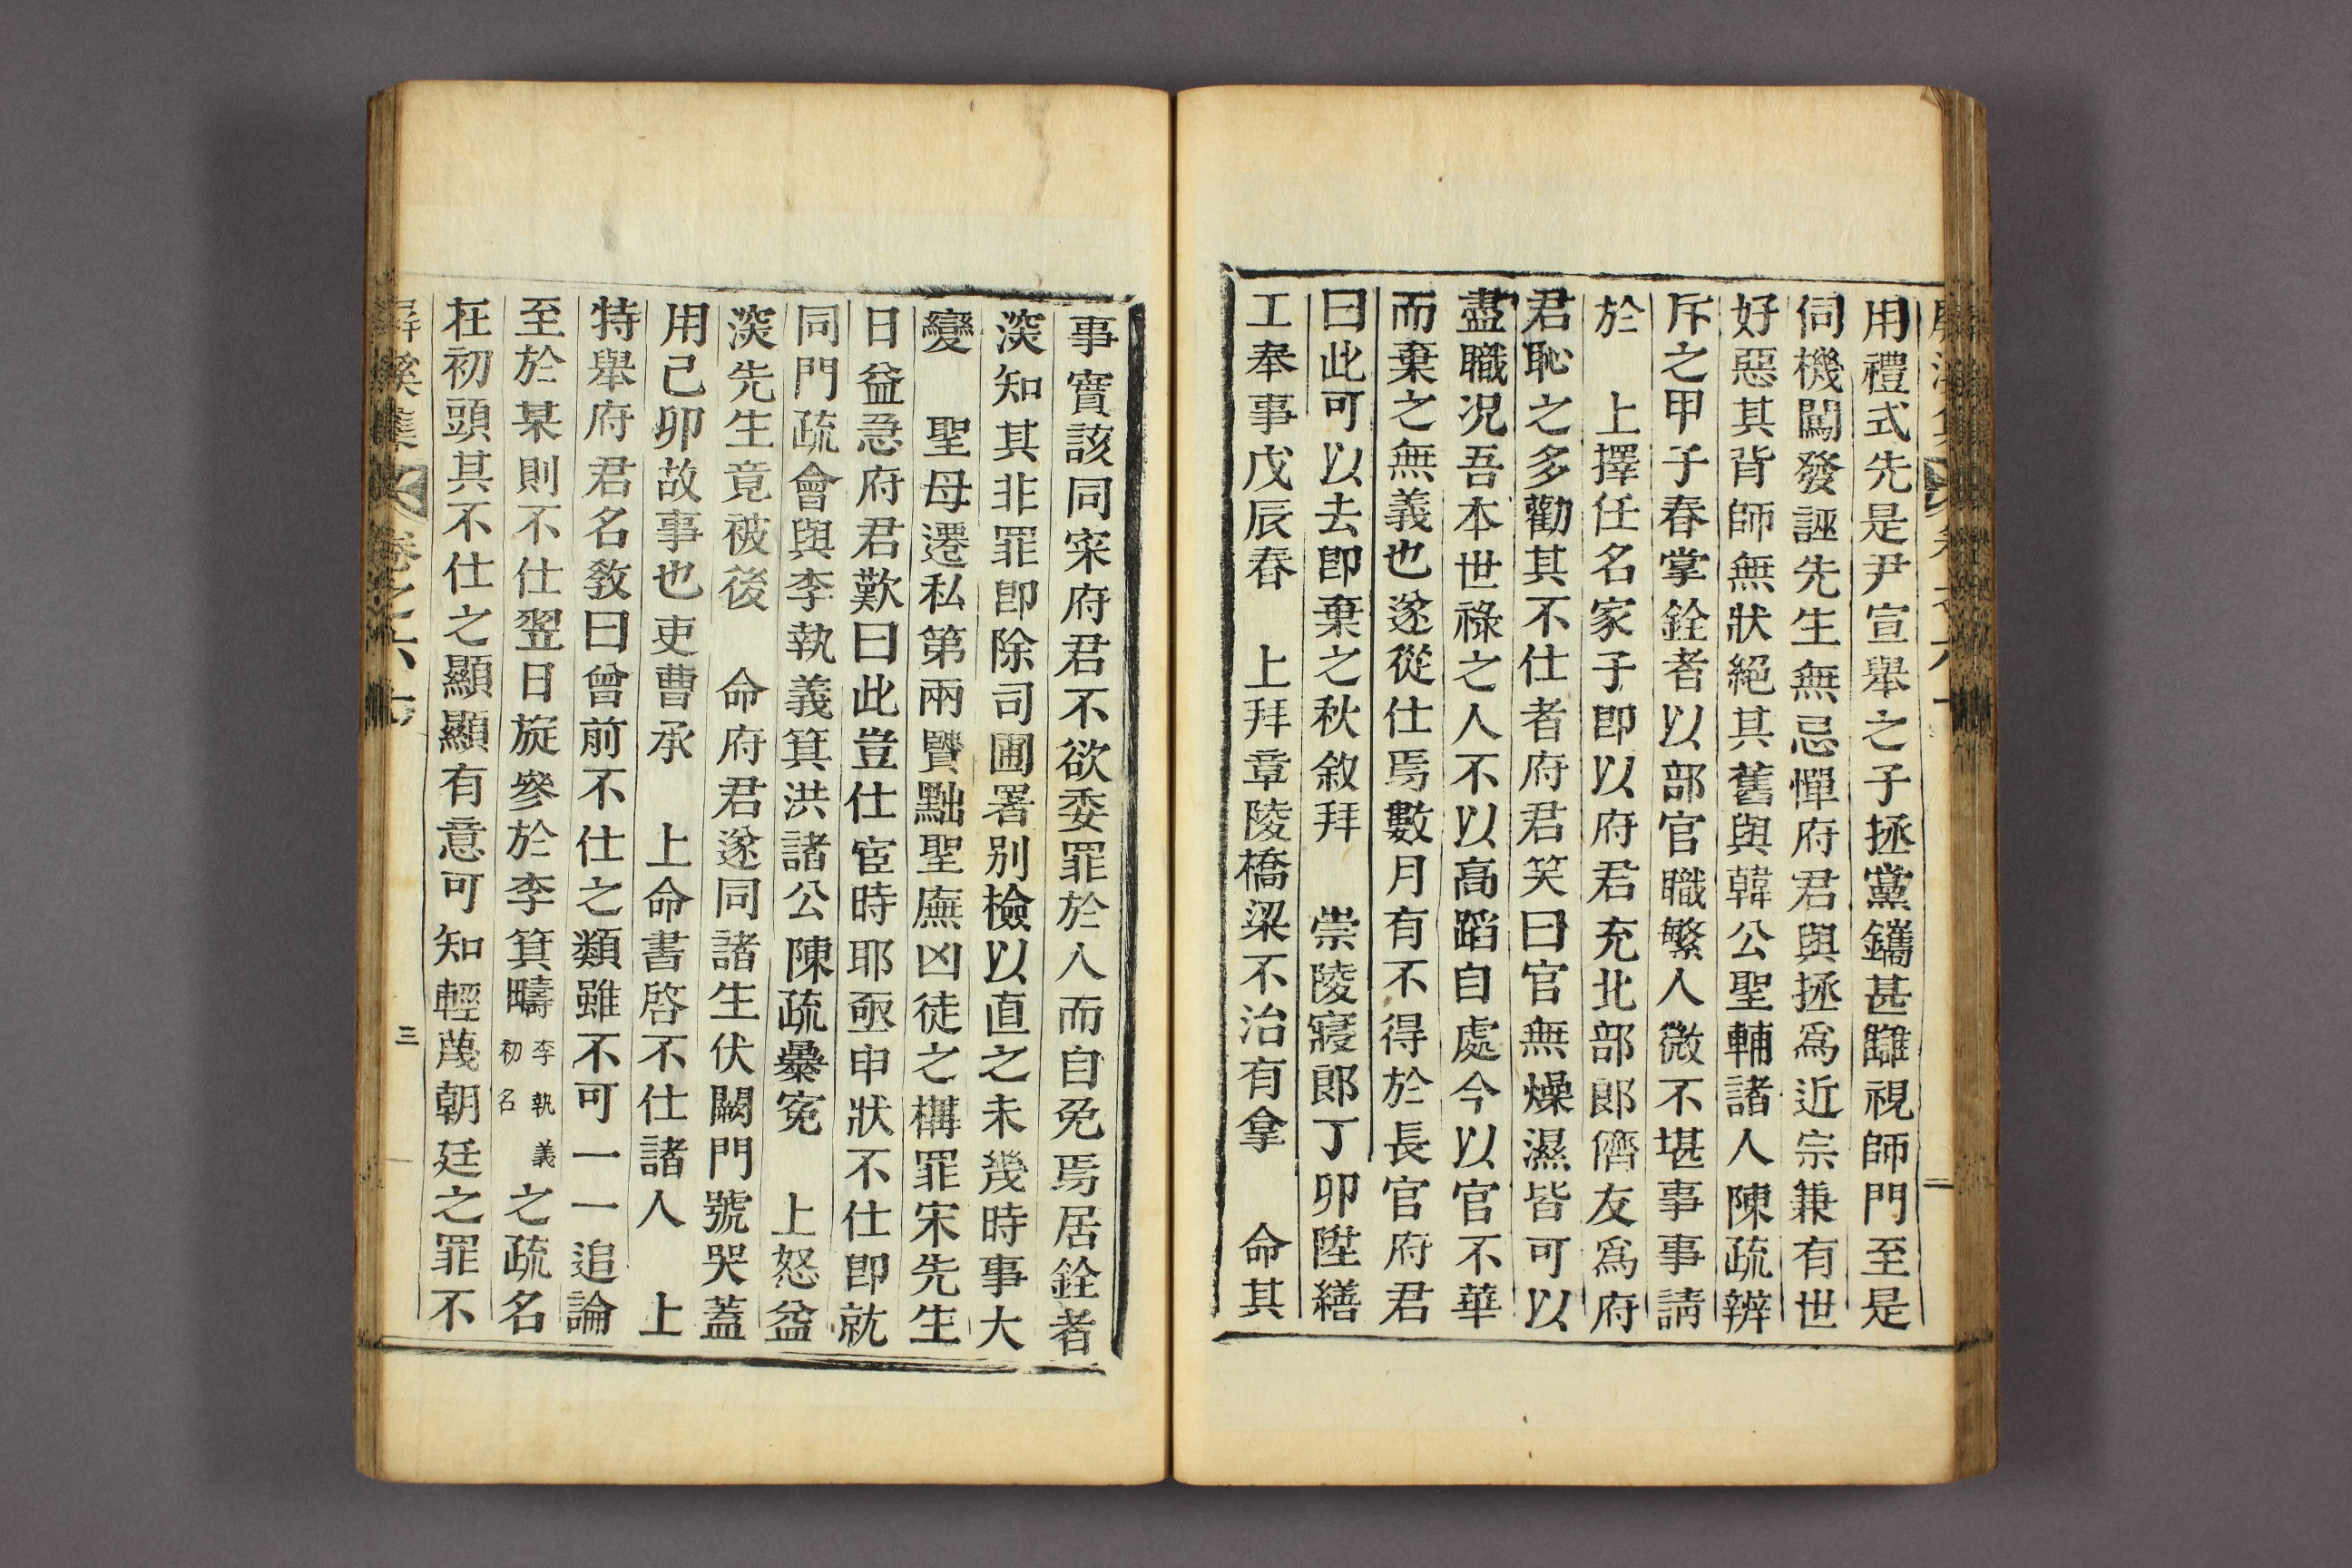 用禮式先是尹宣舉之子拯黨鑴甚讎視師門至是
伺機闖發誣先生無忌憚府君與拯爲近宗兼有世
好惡其背師無狀絕其舊與韓公聖輔諸人陳疏辨
斥之甲子春掌銓者以部官職繁人微不堪事事請
於　上擇任名家子卽以府君充北部郞儕友爲府
君恥之多勸其不仕者府君笑曰官無燥濕皆可以
盡職况吾本世祿之人不以高蹈自處今以官不華
而棄之無義也遂從仕焉數月有不得於長官府君
曰此可以去卽棄之秋敘拜　崇陵寢郞丁卯陞繕
工奉事戊辰春　上拜章陵橋梁不治有拿　命其
事實該同宷府君不欲委罪於人而自免焉居銓者
深知其非罪卽除司圃署別檢以直之未幾時事大
變　聖母遷私第兩賢黜聖廡凶徒之構罪宋先生
日益急府君歎曰此豈仕宦時耶亟申狀不仕卽就
同門疏會與李執義箕洪諸公陳疏暴寃　上怒益
深先生竟被後　命府君遂同諸生伏闕門號哭蓋
用己卯故事也吏曹承　上命書啓不仕諸人　上
特舉府君名敎曰曾前不仕之類雖不可一一追論
至於某則不仕翌日旋參於李箕疇李執義初名之疏名
在初頭其不仕之顯顯有意可知輕蔑朝廷之罪不
屛溪集　卷之六十
三